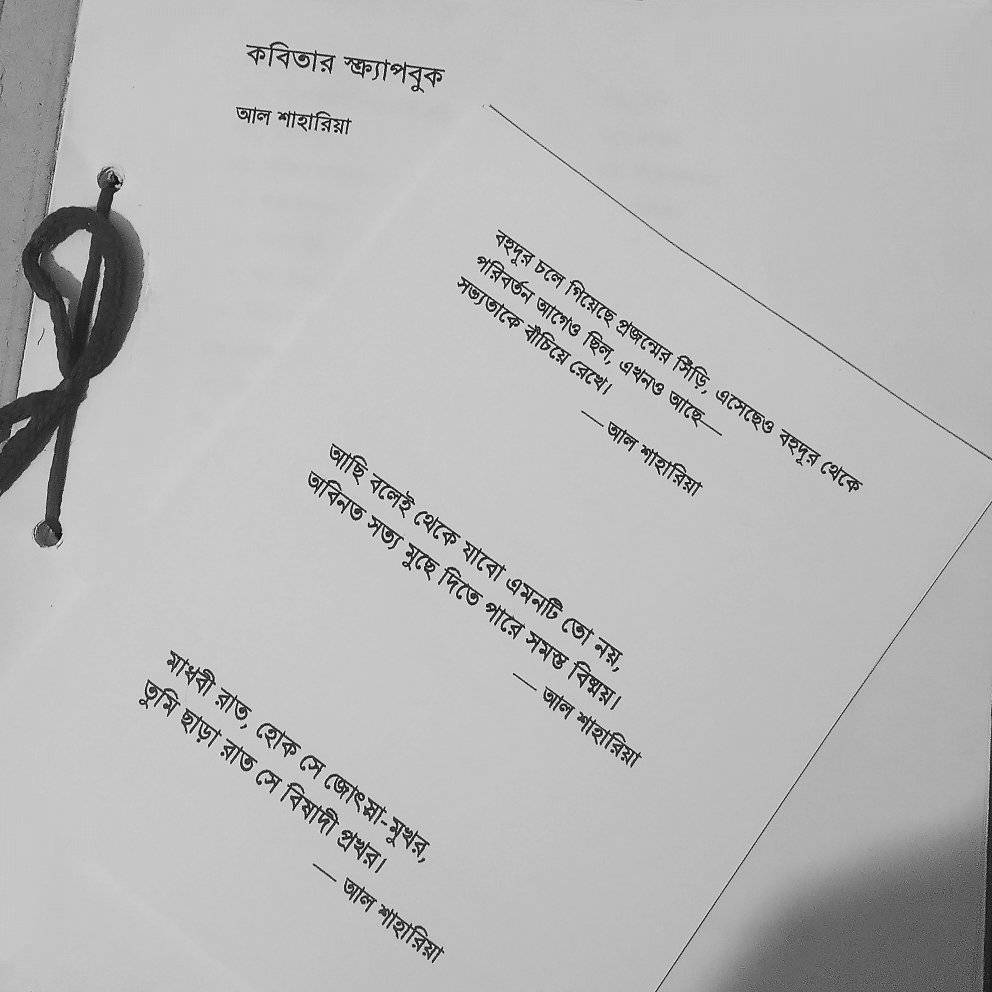 কবিতার স্ক্র্যাপবুক
আল শাহারিয়া
বহুদূর চলে গিয়েছে প্রজন্মের সিঁড়ি, এসেছেও বহুদূর থেকে
পরিবর্তন আগেও ছিল, এখনও আছে—
সভ্যতাকে বাঁচিয়ে রেখে।
—আল শাহারিয়া
আছি বলেই থেকে যাবো এমনটি তো নয়,
অবিনত সত্য মুছে দিতে পারে সমস্ত বিষ্ময়।
— আল শাহারিয়া
মাধবী রাত, হোক সে জোৎস্না-মুখর,
তুমি ছাড়া রাত সে বিষাদী প্রখর।
— আল শাহারিয়া